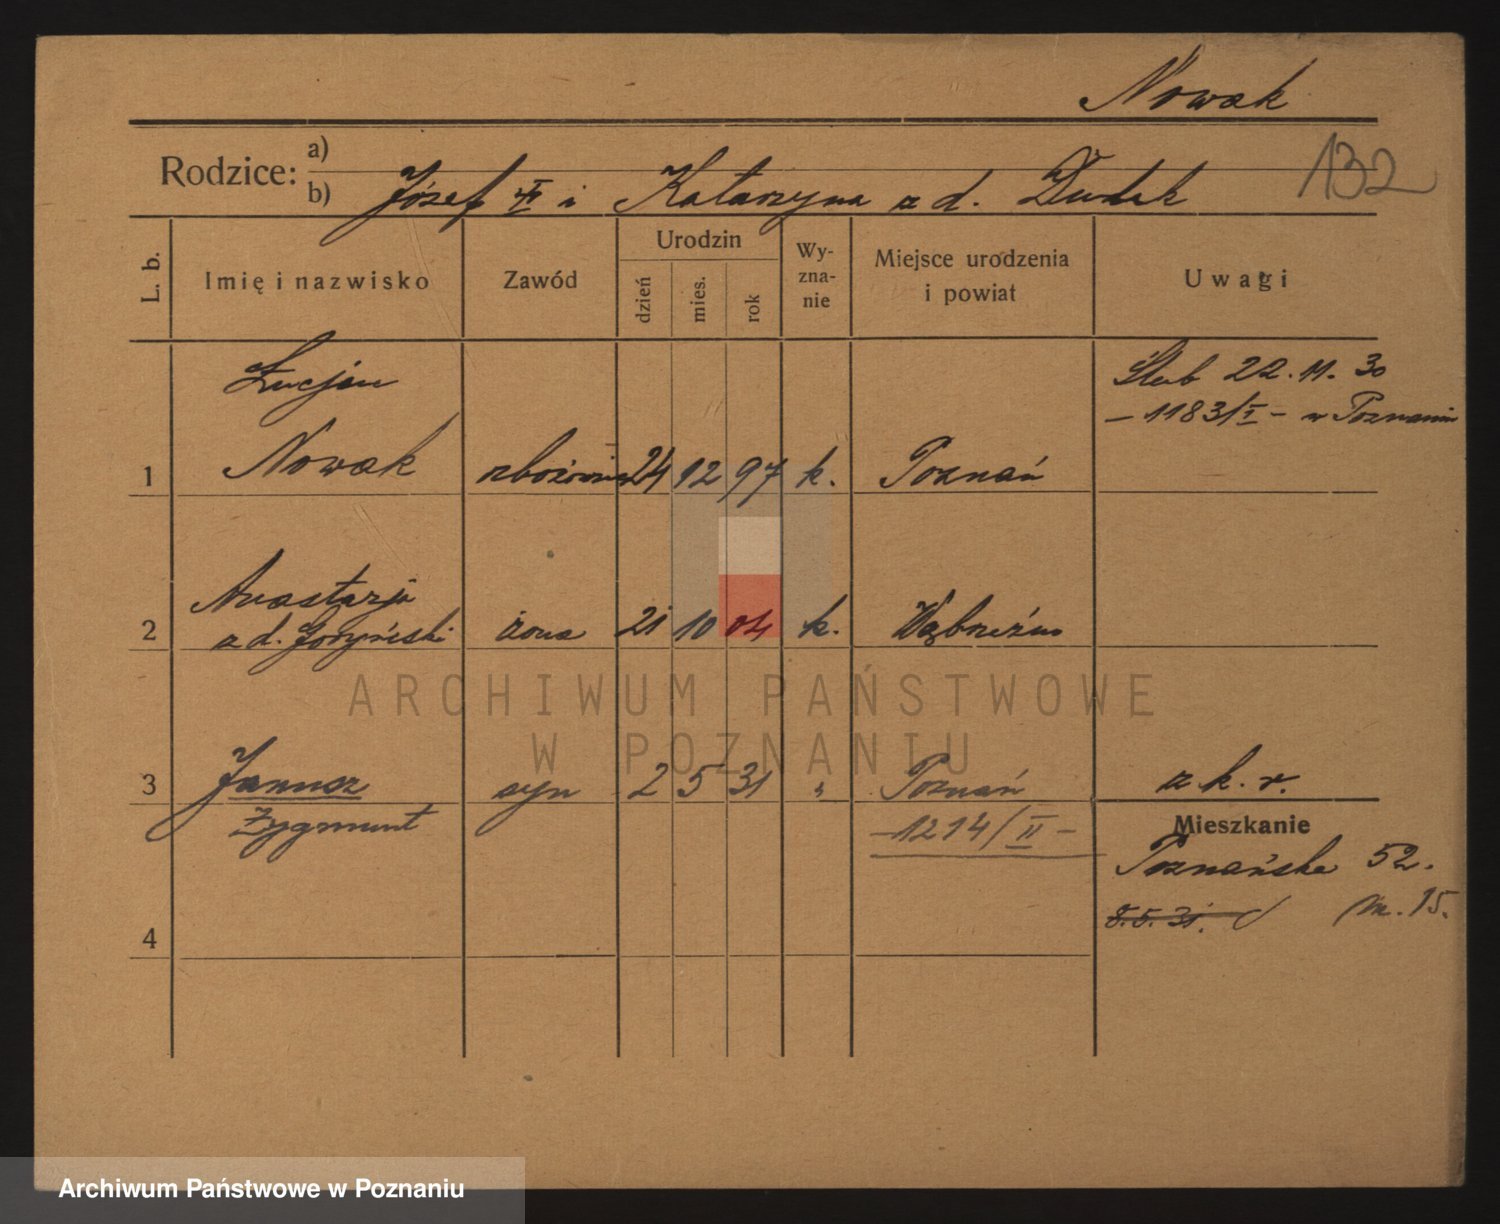 Nowak
132
Rodzice: a)
b) Józef i Katarzyna z d. Dudek
L. b.
Imię i nazwisko
Zawód
Urodzin
dzień
mies.
rok
Wy-
zna-
nie
Miejsce urodzenia
i powiat
Uwagi
Łucjan
Ślub 22. 11. 30
— 1183/I — w Poznaniu
1 Nowak 24 12 97 k. Poznań
Anastazja
2 z d. żona 21 10 04 k. Wąbrzeźno
ARCHIWUM PAŃSTWOWE
W POZNANIU
3 Janusz syn 2 5 31 " Poznań z k. r.
Zygmunt —1214/II—
Mieszkanie
Poznańska 52.
8.5.31. m. 15.
4
Archiwum Państwowe w Poznaniu